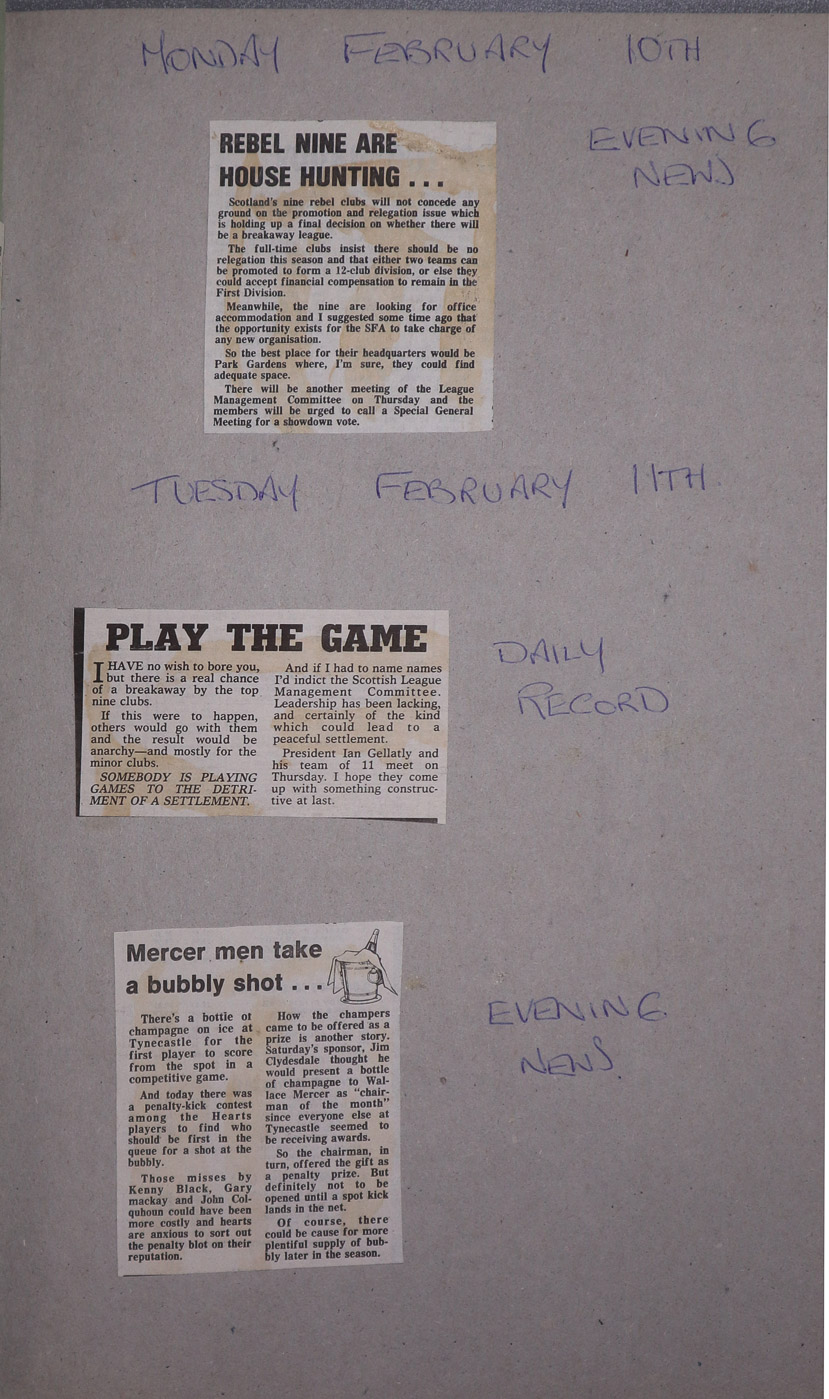 MONDAY FEBRUARY 10TH
EVENING
NEWS
REBEL NINE ARE
HOUSE HUNTING . . .
Scotland's nine rebel clubs will not concede any
ground on the promotion and relegation issue which
is holding up a final decision on whether there will
be a breakaway league.
The full-time clubs insist there should be no
relegation this season and that either two teams can
be promoted to form a 12-club division, or else they
could accept financial compensation to remain in the
First Division.
Meanwhile, the nine are looking for office
accommodation and I suggested some time ago that
the opportunity exists for the SFA to take charge of
any new organisation.
So the best place for their headquarters would be
Park Gardens where, I'm sure, they could find
adequate space.
There will be another meeting of the League
Management Committee on Thursday and the
members will be urged to call a Special General
Meeting for a showdown vote.
TUESDAY FEBRUARY 11TH
DAILY
RECORD
PLAY THE GAME
I HAVE no wish to bore you,
but there is a real chance
of a breakaway by the top
nine clubs.
If this were to happen,
others would go with them
and the result would be
anarchy—and mostly for the
minor clubs.
SOMEBODY IS PLAYING
GAMES TO THE DETRI-
MENT OF A SETTLEMENT.
And if I had to name names
I'd indict the Scottish League
Management Committee.
Leadership has been lacking,
and certainly of the kind
which could lead to a
peaceful settlement.
President Ian Gellatly and
his team of 11 meet on
Thursday. I hope they come
up with something construc-
tive at last.
EVENING
NEWS
Mercer men take
a bubbly shot . . .
There's a bottle of
champagne on ice at
Tynecastle for the
first player to score
from the spot in a
competitive game.
And today there was
a penalty-kick contest
among the Hearts
players to find who
should be first in the
queue for a shot at the
bubbly.
Those misses by
Kenny Black, Gary
mackay and John Col-
quhoun could have been
more costly and hearts
are anxious to sort out
the penalty blot on their
reputation.
How the champers
came to be offered as a
prize is another story.
Saturday's sponsor, Jim
Clydesdale thought he
would present a bottle
of champagne to Wal-
lace Mercer as "chair-
man of the month"
since everyone else at
Tynecastle seemed to
be receiving awards.
So the chairman, in
turn, offered the gift as
a penalty prize. But
definitely not to be
opened until a spot kick
lands in the net.
Of course, there
could be cause for more
plentiful supply of bub-
bly later in the season.